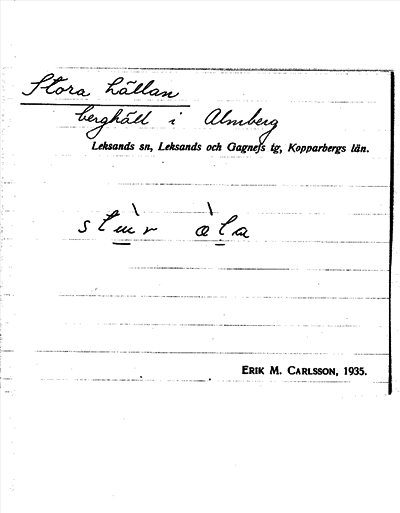 Stora hällan
berghäll i Almberg
Leksands sn, Leksands och Gagnefs tg, Kopparbergs län.
ERIK M. CARLSSON, 1935.